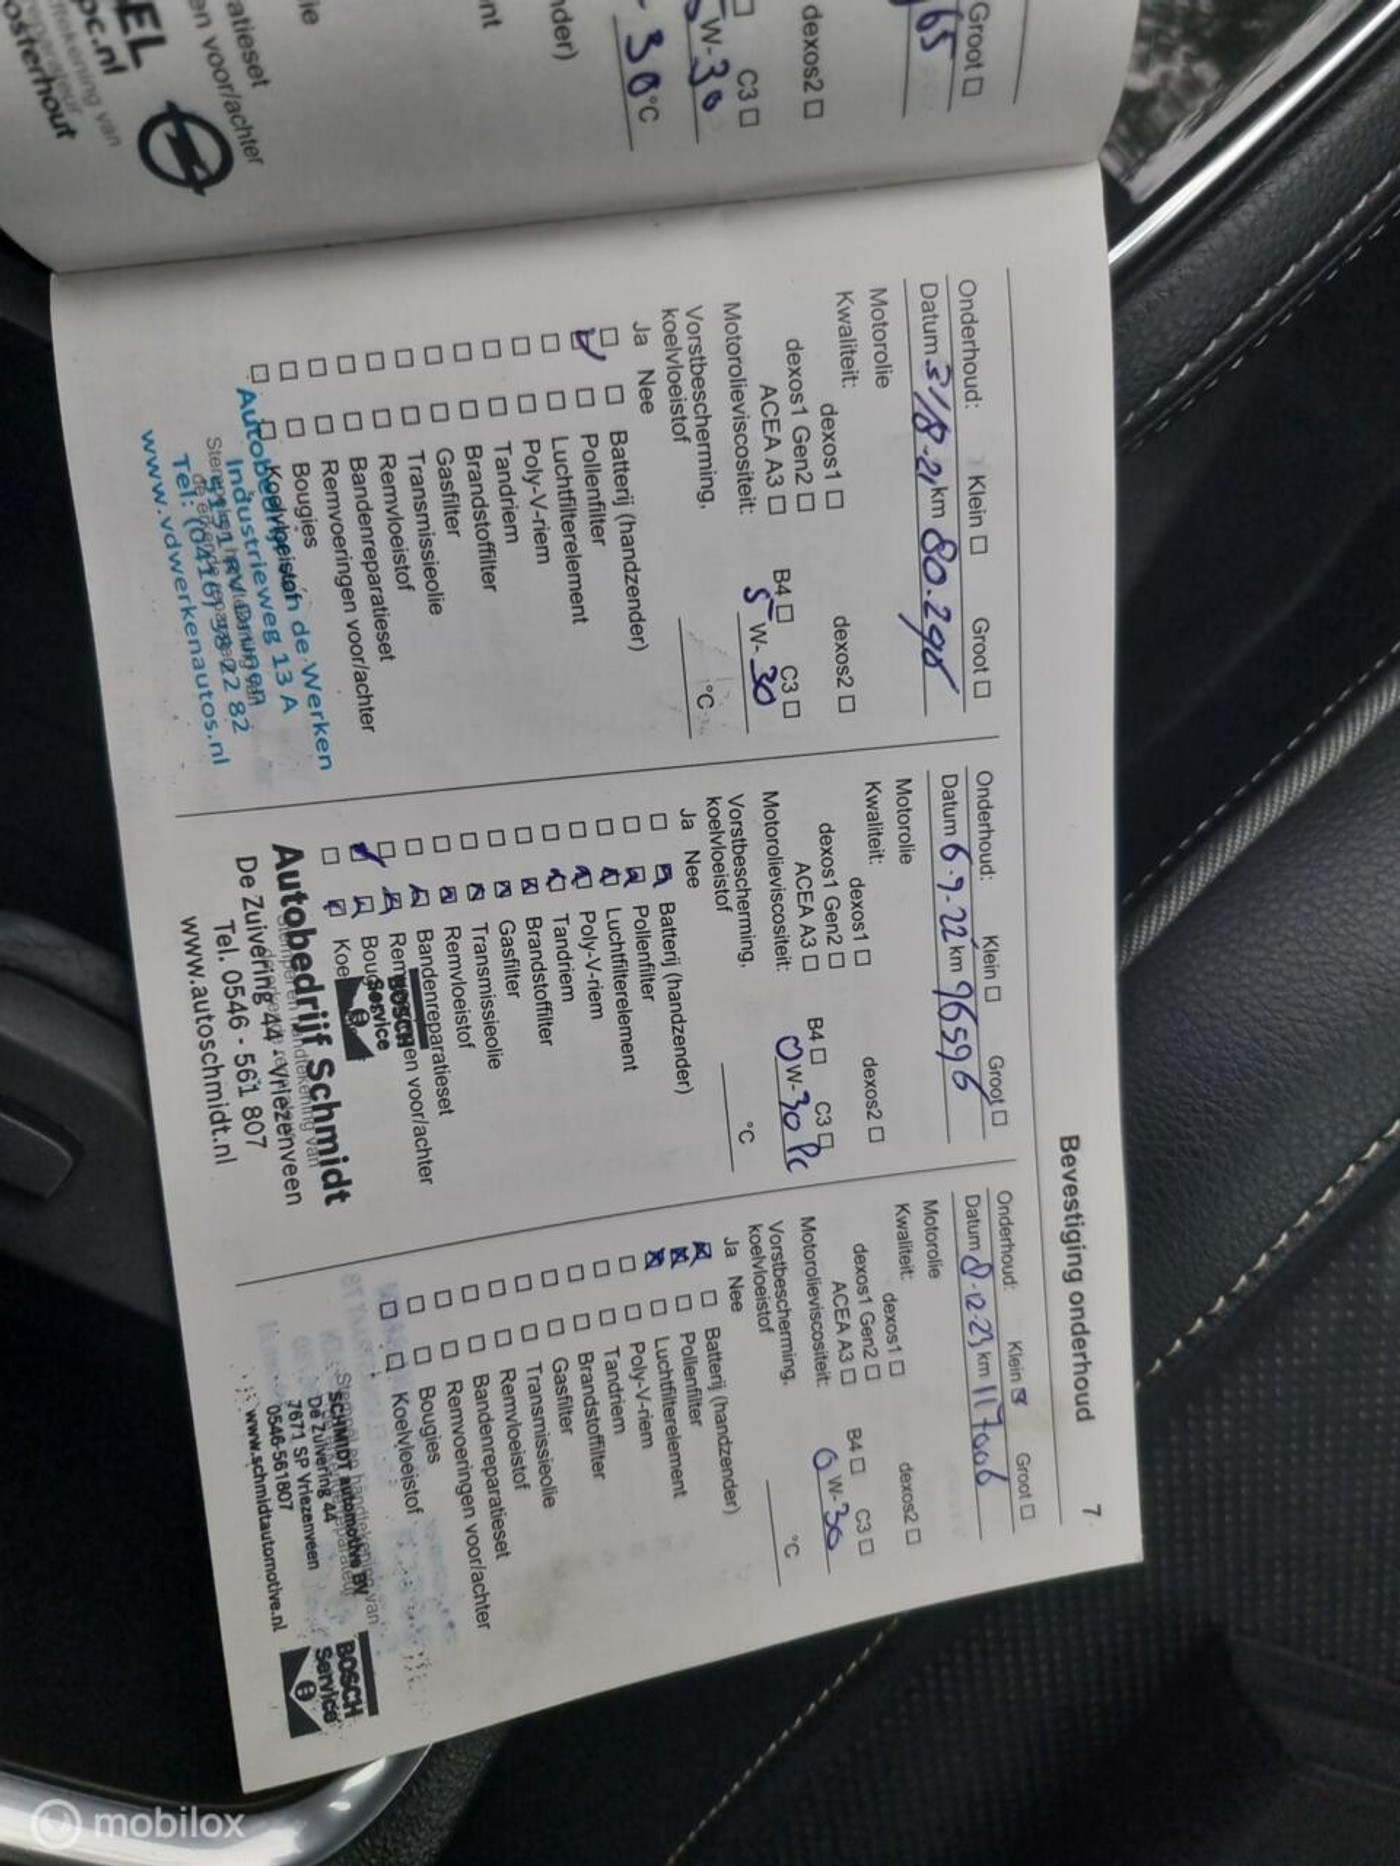 Groot ☐
65
dexos2 ☐
C3 ☐
W-30
30 °C
nder)
nt
ie
atieset
en voor/achter
EL
pc.nl
osterhout
Bevestiging onderhoud
7
Onderhoud: Klein ☐ Groot ☐
Datum 3/8-21 km 80.298
Motorolie
Kwaliteit: dexos1 ☐ dexos2 ☐
dexos1 Gen2 ☐
ACEA A3 ☐ B4 ☐ C3 ☐
Motorolieviscositeit: 5 W-30
Vorstbescherming,
koelvloeistof °C
Ja Nee
☐ ☐ Batterij (handzender)
☑ ☐ Pollenfilter
☐ ☐ Luchtfilterelement
☐ ☐ Poly-V-riem
☐ ☐ Tandriem
☐ ☐ Brandstoffilter
☐ ☐ Gasfilter
☐ ☐ Transmissieolie
☐ ☐ Remvloeistof
☐ ☐ Bandenreparatieset
☐ ☐ Remvoeringen voor/achter
☐ ☐ Bougies
☐ ☐ Koelvloeistof
de Werken
Industrieweg 13 A
Tel: (0416) 38 22 82
www.vdwerkenautos.nl
Onderhoud: Klein ☐ Groot ☐
Datum 6-9-22 km 96596
Motorolie
Kwaliteit: dexos1 ☐ dexos2 ☐
dexos1 Gen2 ☐
ACEA A3 ☐ B4 ☐ C3 ☐
Motorolieviscositeit: 0 W-30
Vorstbescherming,
koelvloeistof °C
Ja Nee
☐ ☒ Batterij (handzender)
☐ ☒ Pollenfilter
☐ ☒ Luchtfilterelement
☐ ☒ Poly-V-riem
☐ ☒ Tandriem
☐ ☒ Brandstoffilter
☐ ☒ Gasfilter
☐ ☒ Transmissieolie
☐ ☒ Remvloeistof
☐ ☒ Bandenreparatieset
☐ ☒ Rem en voor/achter
☑ ☒ Boug
☐ ☒ Koe
BOSCH
Service
Autobedrijf Schmidt
De Zuivering 44 - Vriezenveen
Tel. 0546 - 561 807
www.autoschmidt.nl
Onderhoud: Klein ☒ Groot ☐
Datum 8-12-23 km 117006
Motorolie
Kwaliteit: dexos1 ☐ dexos2 ☐
dexos1 Gen2 ☐
ACEA A3 ☐ B4 ☐ C3 ☐
Motorolieviscositeit: 0 W-30
Vorstbescherming,
koelvloeistof °C
Ja Nee
☒ ☐ Batterij (handzender)
☒ ☐ Pollenfilter
☒ ☐ Luchtfilterelement
☐ ☐ Poly-V-riem
☐ ☐ Tandriem
☐ ☐ Brandstoffilter
☐ ☐ Gasfilter
☐ ☐ Transmissieolie
☐ ☐ Remvloeistof
☐ ☐ Bandenreparatieset
☐ ☐ Remvoeringen voor/achter
☐ ☐ Bougies
☐ ☐ Koelvloeistof
SCHMIDT automotive BV
De Zuivering 44
7671 SP Vriezenveen
0546-561807
www.schmidtautomotive.nl
BOSCH
Service
mobilox